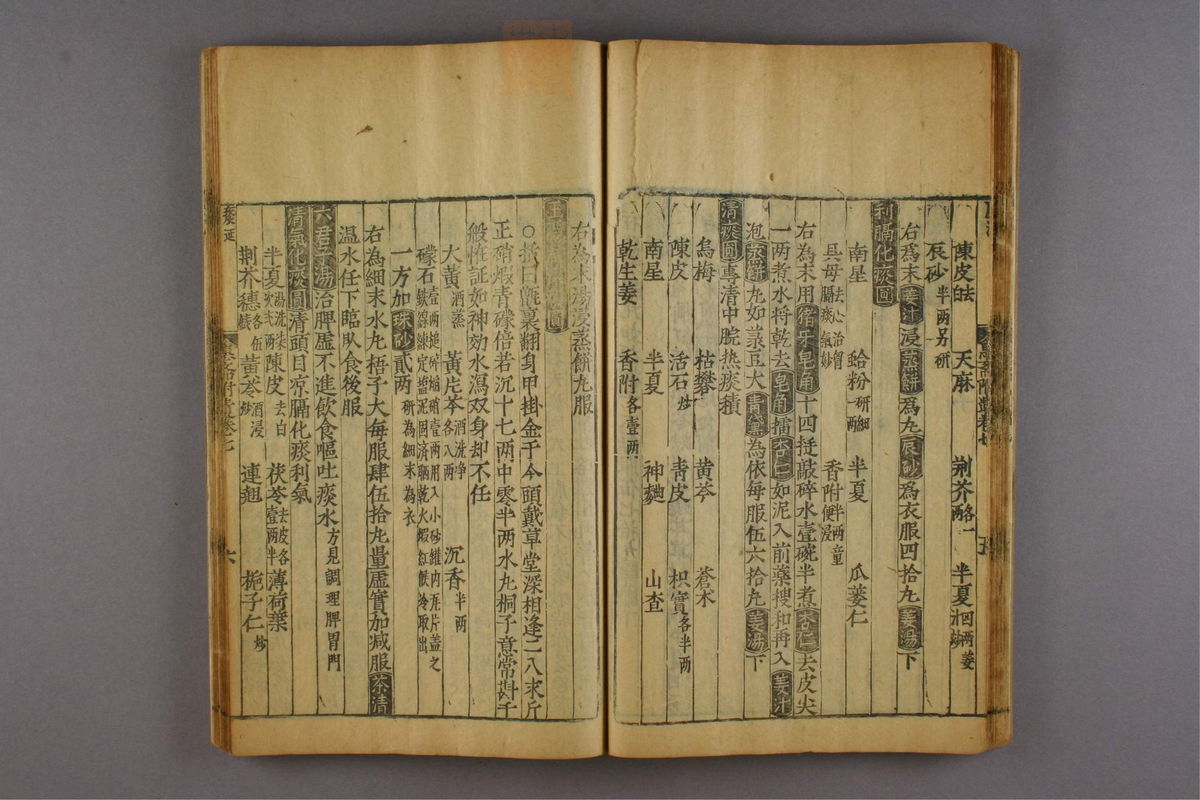 陳皮 去白 天麻 荆芥 各一 半夏 四兩姜
辰砂 半兩另研
右為末姜汁浸蒸餅為丸辰砂為衣服四拾丸姜湯下
利膈化痰圓
南星 蛤粉 研細一兩 半夏 瓜蔞仁
貝母 去心治胷膈痰氣妙 香附 半兩童便浸
右為末用猪牙皂角十四挺敲碎水壹碗半煮杏仁去皮尖
一兩煮水將乾去皂角擂杏仁如泥入前藥搜和再入姜汁
泡蒸餅丸如菉豆大青黛為依每服伍六拾丸姜湯下
清痰圓專清中脘热痰積
烏梅 枯礬 黄芩 蒼术
陳皮 活石 炒 青皮 枳實 各半两
南星 半夏 神麴 山查
乾生姜 香附 各壹两
右為末湯浸蒸餅丸服
○抵曰甑裏翻身甲掛金于今頭戴草堂深相逢二八求斤
正硝煅青礞倍若沉十七两中零半两水丸桐子意常斟千
般恠証如神効水瀉双身却不任
大黄 酒蒸 黄芩 酒洗净各八两 沉香 半两
礞石
一方加珠砂贰两 研為細末為衣
右為細末水丸梧子大每服肆伍拾丸量虚實加减服茶清
温水任下臨臥食後服
六君子湯治脾虚不進飲食嘔吐痰水 方見調理脾胃門
清氣化痰圓清頭目凉膈化痰利氣
半夏 湯洗柒次贰两 陳皮 去白 茯苓 去皮各壹两半 薄荷葉
荆芥穗 黄芩 酒浸炒 連翹 栀子仁 炒
六